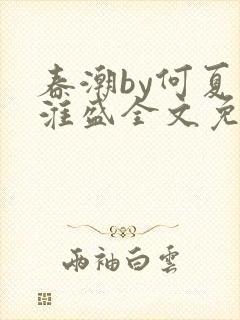 春潮by何夏
漄盛全文免
两袖白雲